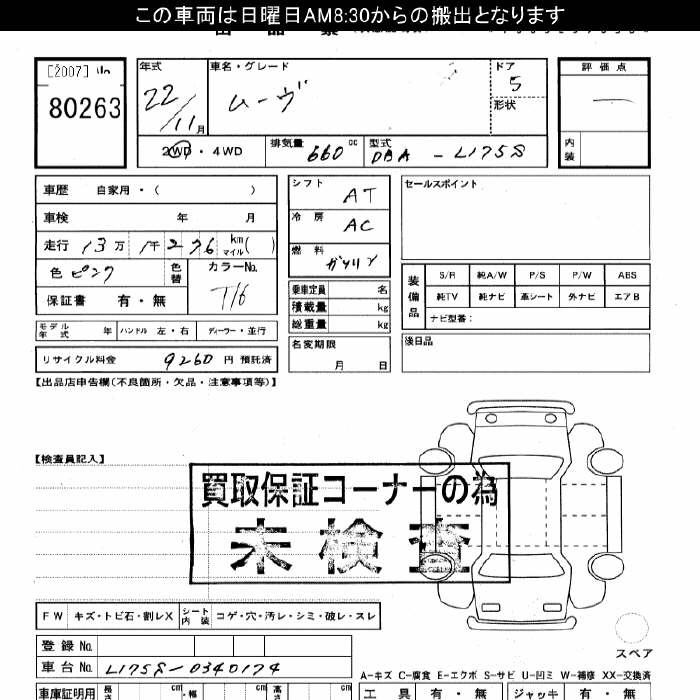 この車両は日曜日AM8:30からの搬出となります
[2007] 山
80263
年式 22/11月
車名・グレード ムーヴ
ドア 5
形状
評価点 —
内装
2WD・4WD
排気量 660cc
型式 DBA - L175S
車歴 自家用・( )
車検 年 月
走行 13万 1千276 km マイル( )
色 ピンク
色替
カラーNo. T16
保証書 有・無
シフト AT
冷房 AC
燃料 ガソリン
乗車定員 名
積載量 kg
総重量 kg
名変期限 月 日
セールスポイント
装備品
S/R 純A/W P/S P/W ABS
純TV 純ナビ 革シート 外ナビ エアB
ナビ型番:
後日品
モデル年式 年
ハンドル 左・右
ディーラー・並行
リサイクル料金 9260 円 預託済
【出品店申告欄(不良箇所・欠品・注意事項等)】
【検査員記入】
買取保証コーナーの為
未検査
FW キズ・トビ石・割レX
シート内装 コゲ・穴・汚レ・シミ・破レ・スレ
スペア
登録No.
車台No. L175S-0340174
A-キズ C-腐食 E-エクボ S-サビ U-凹ミ W-補修 XX-交換済
車庫証明用 長さ cm ・幅 cm 高さ cm
工具 有・無
ジャッキ 有・無